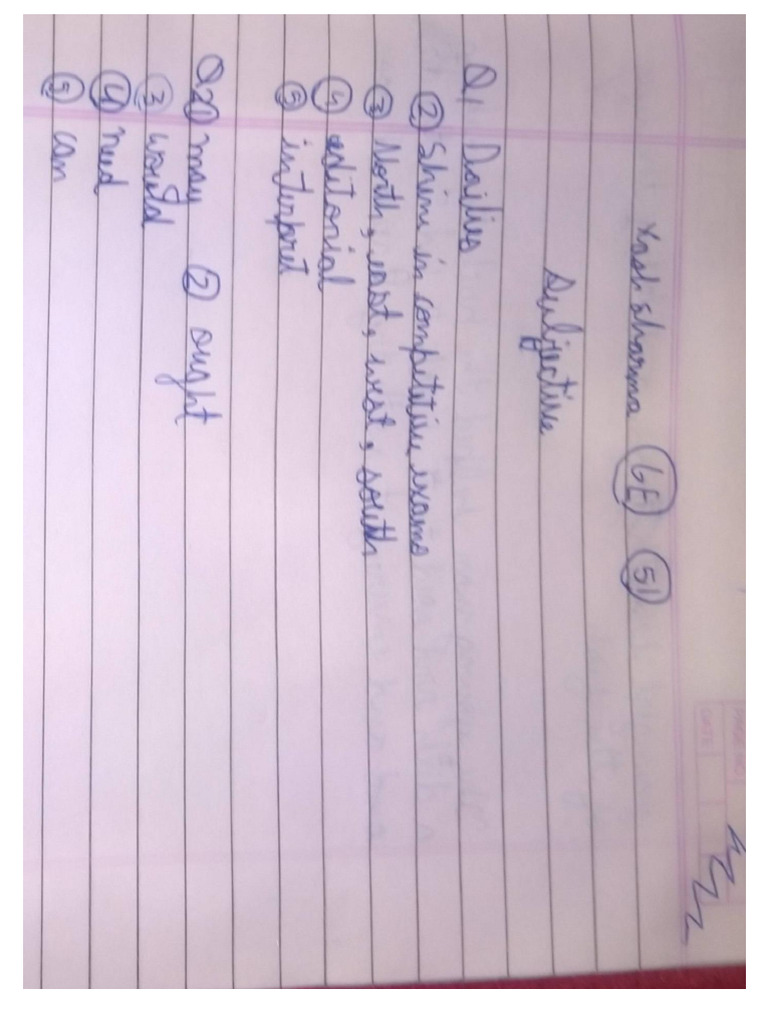 PAGE NO
DATE
Yash sharma 6E 51
Subjective
Q.1 Dailies
② Shine in competitive exams
③ North, east, west, south
④ editorial
⑤ interpret
Q.2① may ② ought
③ would
④ need
⑤ can